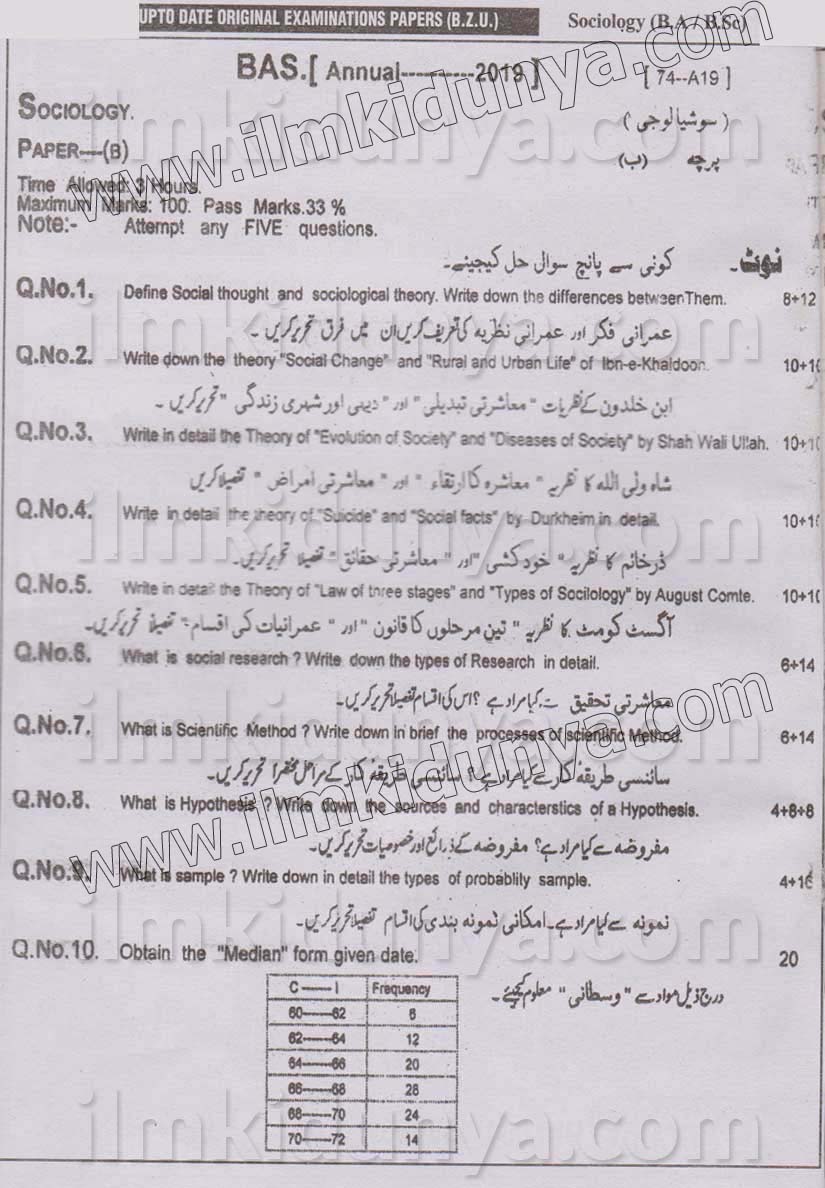 UPTO DATE ORIGINAL EXAMINATIONS PAPERS (B.Z.U.) Sociology (B.A / B.Sc)
BAS.[ Annual----------2019 ] [ 74--A19 ]
SOCIOLOGY. (سوشیالوجی)
PAPER----(B) پرچے (ب)
Time Allowed: 3 Hours.
Maximum Marks: 100. Pass Marks.33 %
Note:- Attempt any FIVE questions.
نوٹ۔ کوئی سے پانچ سوال حل کیجیئے۔
Q.No.1. Define Social thought and sociological theory. Write down the differences between Them. 8+12
عمرانی فکر اور عمرانی نظریہ کی تعریف کریں ان میں فرق تحریر کریں ۔
Q.No.2. Write down the theory "Social Change" and "Rural and Urban Life" of Ibn-e-Khaldoon. 10+10
ابن خلدون کے نظریات "معاشرتی تبدیلی" اور "دیہی اور شہری زندگی" تحریر کریں ۔
Q.No.3. Write in detail the Theory of "Evolution of Society" and "Diseases of Society" by Shah Wali Ullah. 10+10
شاہ ولی اللہ کا نظریہ "معاشرہ کا ارتقاء" اور "معاشرتی امراض" تفصیلا کریں
Q.No.4. Write in detail the theory of "Suicide" and "Social facts" by Durkheim in detail. 10+10
ڈرخائم کا نظریہ "خودکشی" اور "معاشرتی حقائق" تفصیلا تحریر کریں۔
Q.No.5. Write in detail the Theory of "Law of three stages" and "Types of Socilology" by August Comte. 10+10
آگسٹ کومٹ کا نظریہ "تین مرحلوں کا قانون" اور "عمرانیات کی اقسام" تفصیلاً تحریر کریں۔
Q.No.6. What is social research ? Write down the types of Research in detail. 6+14
معاشرتی تحقیق سے کیا مراد ہے ؟ اس کی اقسام تفصیلا تحریر کریں۔
Q.No.7. What is Scientific Method ? Write down in brief the processes of scientific Method. 6+14
سائنسی طریقۂ کار سے کیا مراد ہے؟ سائنسی طریقۂ کار کے مراحل مختصراً تحریر کریں۔
Q.No.8. What is Hypothesis ? Write down the sources and characterstics of a Hypothesis. 4+8+8
مفروضہ سے کیا مراد ہے؟ مفروضہ کے ذرائع اور خصوصیات تحریر کریں۔
Q.No.9. What is sample ? Write down in detail the types of probablity sample. 4+16
نمونہ سے کیا مراد ہے۔ امکانی نمونہ بندی کی اقسام تفصیلا تحریر کریں۔
Q.No.10. Obtain the "Median" form given date. 20
درج ذیل مواد سے "وسطانی" معلوم کیجیئے۔
C------I Frequency
60------62 6
62------64 12
64------66 20
66------68 28
68------70 24
70------72 14
www.ilmkidunya.com
www.ilmkidunya.com
ilmkidunya.com
ilmkidunya.com
ilmkidunya.com
ilmkidunya.com
ilmkidunya.com
ilmkidunya.com